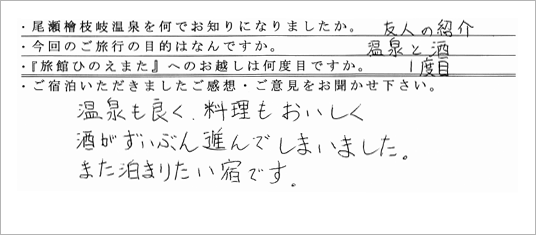 ・尾瀬檜枝岐温泉を何でお知りになりましたか。 友人の紹介
・今回のご旅行の目的はなんですか。 温泉と酒
・『旅館ひのえまた』へのお越しは何度目ですか。 1度目
・ご宿泊いただきましたご感想・ご意見をお聞かせ下さい。
温泉も良く、料理もおいしく
酒がずいぶん進んでしまいました。
また泊まりたい宿です。